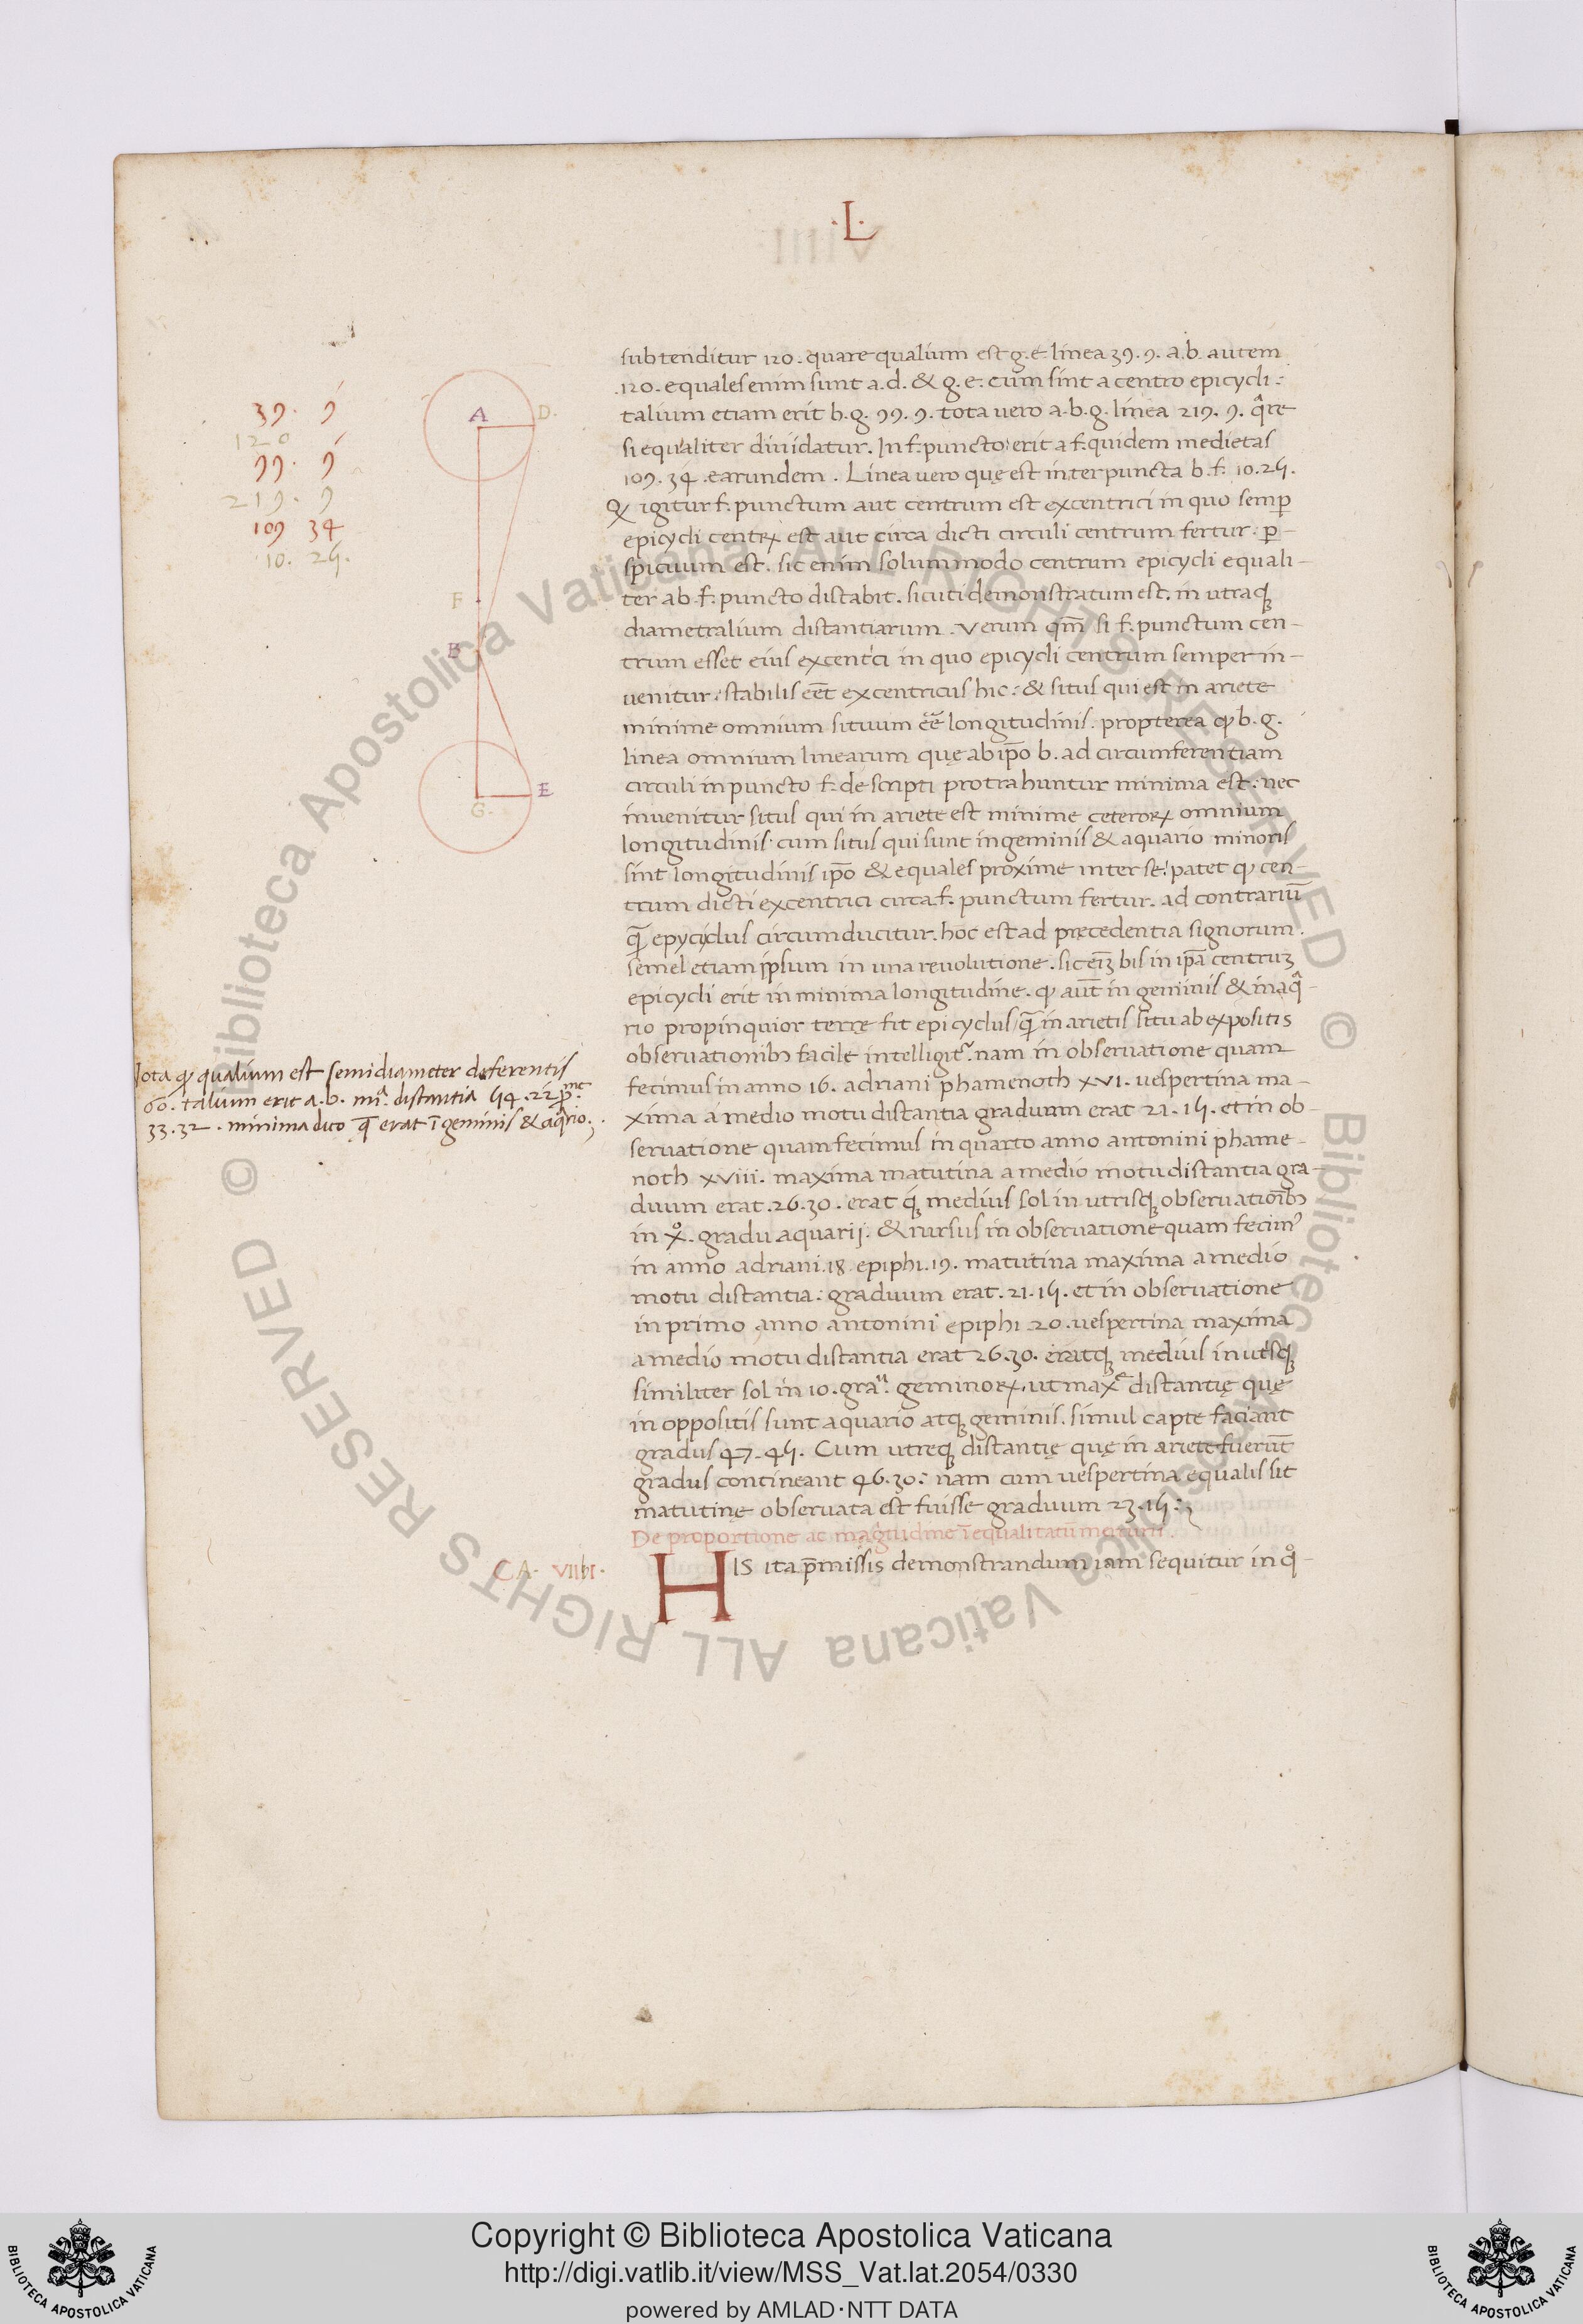 ·L·
subtenditur 120. quare qualium est g.e linea 39. 9. a.b. autem
.120. equales enim sunt a.d. & g.e. cum sint a centro epicycli:
talium etiam erit b.g. 99. 9. tota uero a.b.g. linea 219. 9. q̃re
si equaliter diuidatur. In f. puncto: erit a f. quidem medietas
109. 34. earundem. Linea uero quę est inter puncta b.f. 10. 25.
Q igitur f. punctum aut centrum est excentrici in quo semp̱
epicycli centrꝝ est aut circa dicti circuli centrum fertur. p̱-
spicuum est. sic enim solummodo centrum epicycli equali-
ter ab f. puncto distabit. sicuti demonstratum est. in utraqꝫ
diametralium distantiarum. Verum qm̄ si f. punctum cen-
trum esset eius excent'ci in quo epicycli centrum semper in-
uenitur. stabilis eēt excentricus hic: & situs qui est in ariete
minime omnium situum eē longitudinis. propterea ꝙ b.g.
linea omnium linearum quę ab ip̄o b. ad circumferentiam
circuli in puncto f. descripti protrahuntur minima est: nec
inuenitur situs qui in ariete est minime ceterorꝝ omnium
longitudinis. cum situs qui sunt in geminis & aquario minoris
sint longitudinis ip̄o & equales proxime inter se. patet ꝙ cen-
trum dicti excentrici circa f. punctum fertur. ad contrariū
q̄ epycyclus circumducitur. hoc est ad pręcedentia signorum.
semel etiam ipsum in una reuolutione. sic eīꝫ bis in ip̄a centruꝫ
epicycli erit in minima longitudine. ꝙ aūt in geminis & in aq̃-
rio propinquior terrę fit epicyclus q̄ in arietis situ ab expositis
obseruationibꝫ facile intelligit᷑. nam in obseruatione quam
fecimus in anno 16. adriani phamenoth xvi. uespertina ma-
xima a medio motu distantia graduum erat 21. 15. et in ob-
seruatione quam fecimus in quarto anno antonini phame-
noth xviii. maxima matutina a medio motu distantia gra-
duum erat. 26. 30. erat qꝫ medius sol in utrisqꝫ obseruatiōībꝫ
in xº. gradu aquarij. & rursus in obseruatione quam fecimꝰ
in anno adriani. 18 epiphi. 19. matutina maxima a medio
motu distantia: graduum erat. 21. 15. et in obseruatione
in primo anno antonini epiphi 20. uespertina maxima
a medio motu distantia erat 26. 30. eratqꝫ medius in ut'sqꝫ
similiter sol in 10. graᵘ. geminorꝝ. ut maxᵉ distantię quę
in oppositis sunt aquario atqꝫ geminis. simul capte faciant
gradus 47. 45. Cum utręqꝫ distantię quę in ariete fuerūt
gradus contineant 46. 30: nam cum uespertina equalis sit
matutinę obseruata est fuisse graduum 23. 15:
De proportione ac magitudine īequalitatū motuum.
CA. VIIII.
HIS ita p̄missis demonstrandum iam sequitur in qº-
39. 9
120
99. 9
219. 9
109 34
10. 25.
A
D.
F
B
G.
E
Nota ꝙ qualium est semidiameter deferentis
60. talium erit a.b. mᵃ. distantia 54. 22 p̱.
33. 32. minima dico q̄ erat ī geminis & aq̃rio.
Copyright © Biblioteca Apostolica Vaticana
http://digi.vatlib.it/view/MSS_Vat.lat.2054/0330
powered by AMLAD·NTT DATA
BIBLIOTECA APOSTOLICA VATICANA
BIBLIOTECA APOSTOLICA VATICANA
© Biblioteca Apostolica Vaticana ALL RIGHTS RESERVED © Biblioteca Apostolica Vaticana ALL RIGHTS RESERVED